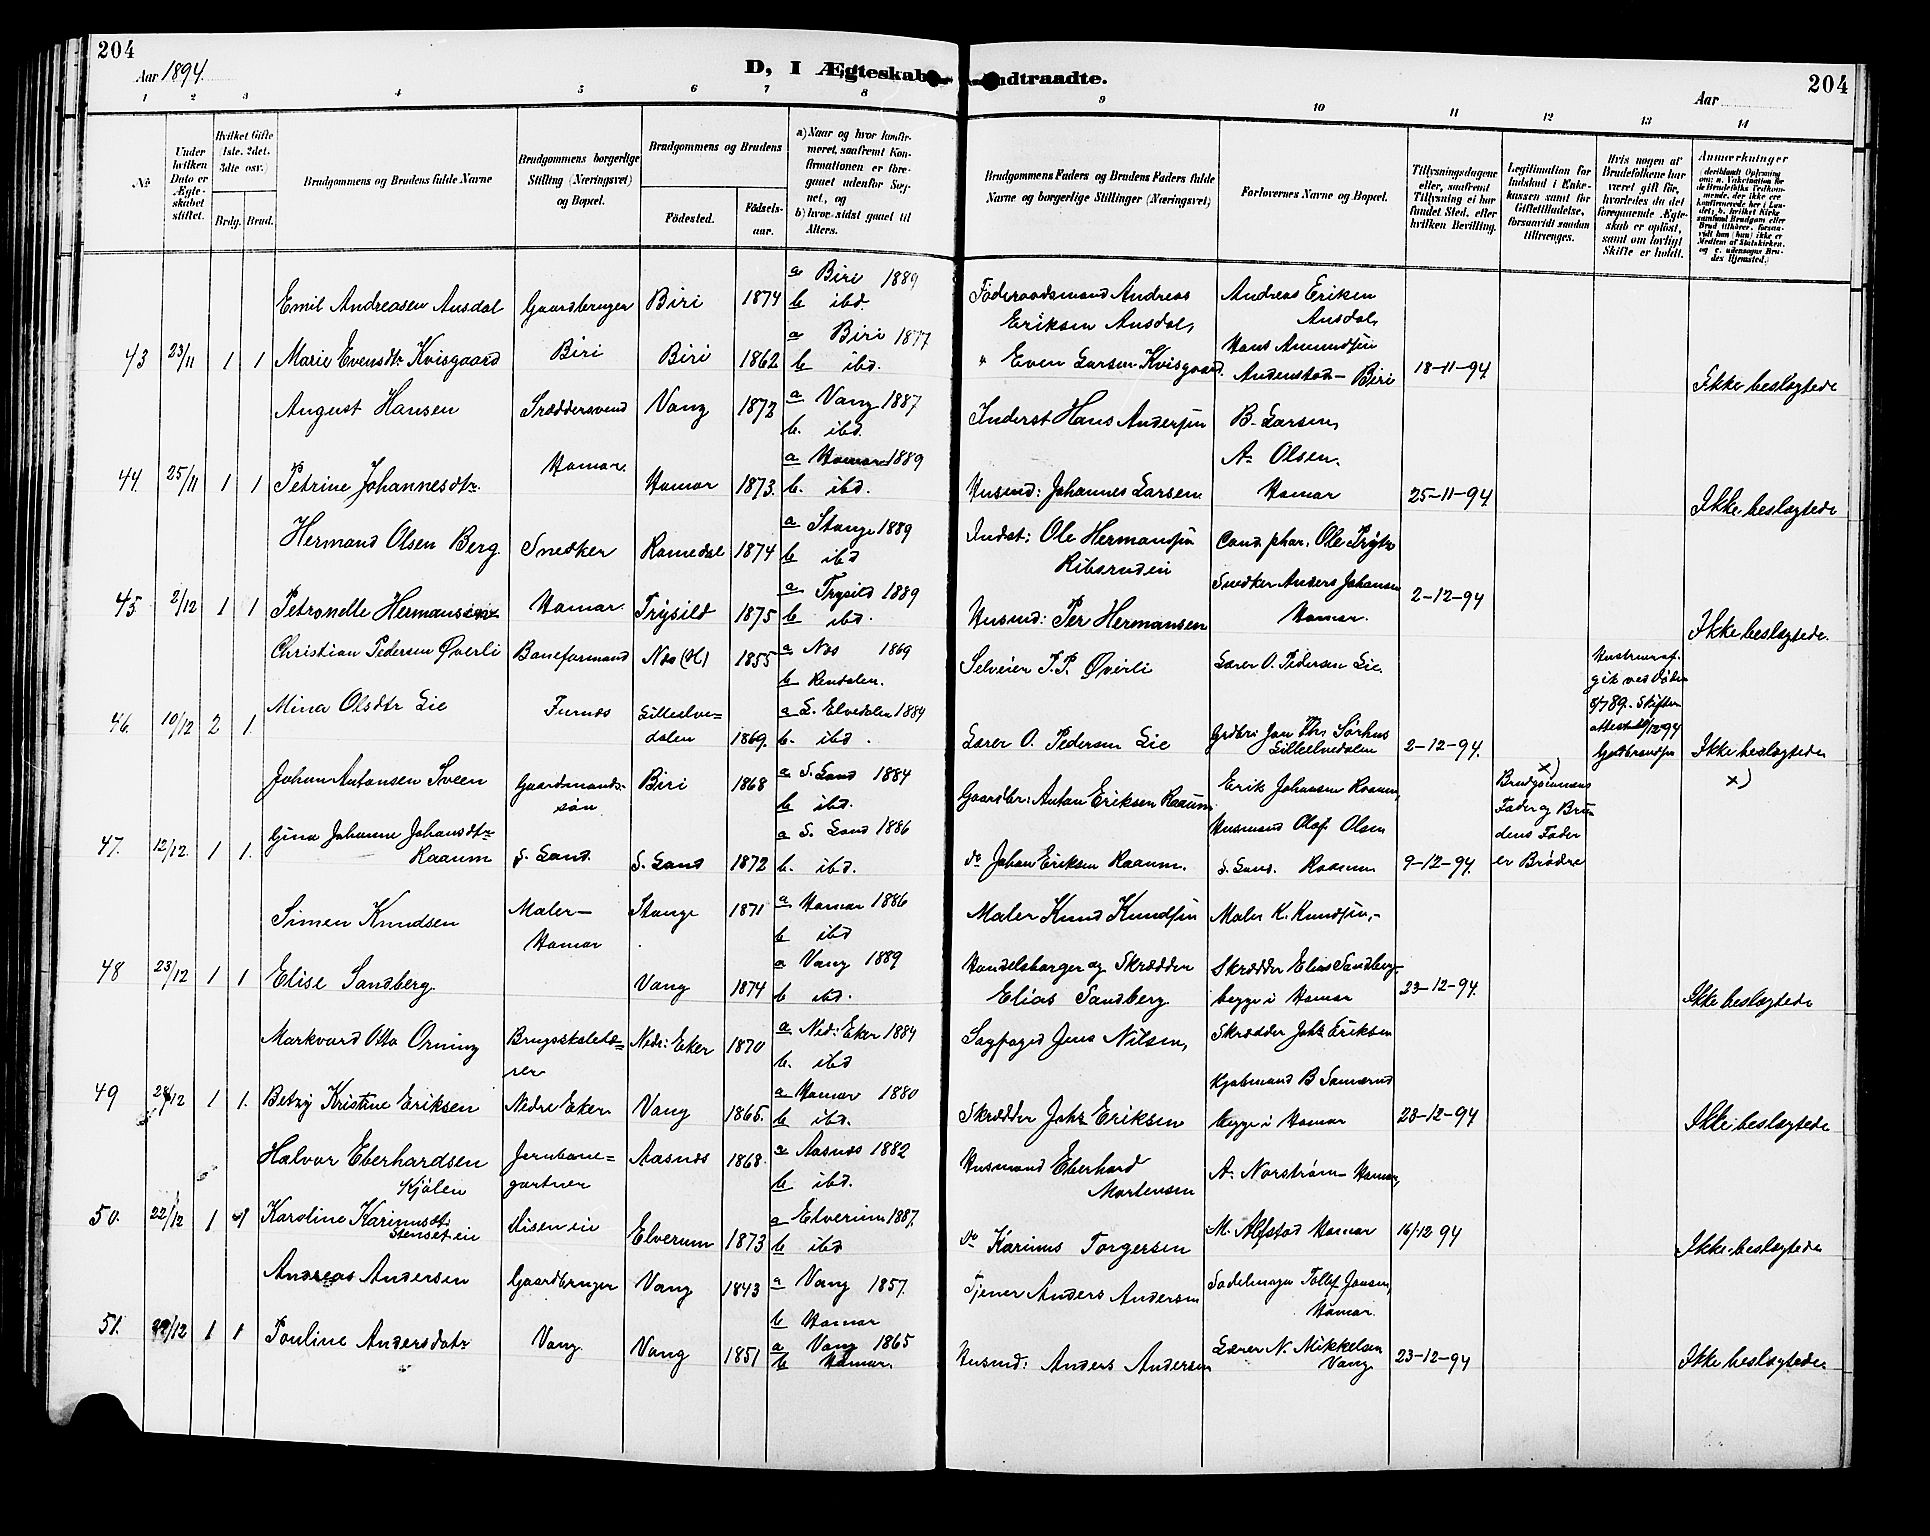 204
Aar 1894.
D, I Ægteskab Indtraadte.
Aar
204
1 2 3 4 5 6 7 8 9 10 11 12 13 14
No
Under hvilken Dato er Ægteskabet stiftet.
Hvilket Gifte (1ste. 2det. 3dte osv.)
Brdg. Brud.
Brudgommens og Brudens fulde Navne
Brudgommens borgerlige Stilling (Næringsvei) og Bopæl.
Brudgommens og Brudens
Fødested.
Fødselsaar.
a) Naar og hvor konfirmeret, saafremt Konfirmationen er foregaaet udenfor Sognet, og
b) hvor sidst gaaet til Alters.
Brudgommens Faders og Brudens Faders fulde Navne og borgerlige Stillinger (Næringsvei)
Forlovernes Navne og Bopæl.
Tillysningsdagene eller, saafremt Tillysning ei har fundet Sted, efter hvilken Bevilling.
Legitimation for Indskud i Enkekassen samt for Giftetilladelse, forsaavidt saadan tiltrænges.
Hvis nogen af Brudefolkene har været gift før, hvorledes da det foregaaende Ægteskab er opløst, samt om lovligt Skifte er holdt.
Anmærkninger
Emil Andreasen Ausdal Gaardbruger Biri 1874 a Biri 1889 b ibd. Føderaadsmand Andreas Eriksen Ausdal, Andreas Eriksen Ausdal,
43 23/11 1 1 Marie Evensdtr Kvisgaard Biri Biri 1862 a Biri 1877 b ibd. " Even Larsen Kvisgaard. Hans Amundsen Andenstad - Biri 18-11-94. Ikke beslægtede
August Hansen Skræddersvend Vang 1872 a Vang 1887 b. ibd. Inderst Hans Andersen B. Larsen,
44. 25/11 1 1 Petrine Johannesdtr. Hamar. Hamar 1873. a Hamar 1889 b. ibd. Husmd: Johannes Larsen A. Olsen. Hamar 25-11-94 Ikke beslægtede
Hermand Olsen Berg. Snedker Romedal 1874 a Stange 1889 b ibd Indst: Ole Hermansen Ribsruden Cand phar. Ole Trytn
45 2/12 1 1 Petronelle Hermansen Hamar. Trysild 1875 a Trysild 1889 b ibd. Husmd: Per Hermansen Snedker Anders Johansen Hamar. 2-12-94 Ikke beslægtede.
Christian Pedersen Øverli Baneformand Næs (H) 1855 a Næs 1869 b Rendalen. Selveier P.P. Øverli Lærer O. Pedersen Lie.
46. 10/12 2 1. Mina Olsdtr Lie Furnæs Lilleelvedalen 1869. a L. Elvedalen 1884 b. ibd. Lærer O. Pedersen Lie Grdbr: Jon Thr. Sørhus Lilleelvedalen 2-12-94. Ikke beslægtede
Johan Antonsen Sveen Gaardmandssøn Biri 1868 a S. Land 1884 b ibd. Gaardbr: Anton Eriksen Raaum Erik Johansen Raaum, x) Brudgommens Fader og Brudens Fader er Brødre x)
47. 12/12. 1 1. Gina Johanne Johansdtr Raaum S. Land. S. Land 1872 a S. Land 1886 b. ibd. do Johan Eriksen Raaum. Husmand Olof Olsen S. Land. Raaum 9-12-94.
Simen Knudsen Maler- Hamar Stange 1871 a Hamar 1886 b ibd Maler Knud Knudsen Maler K. Knudsen,-
48 23/12 1 1 Elise Sandberg. Vang 1874 a Vang 1889 b ibd. Handelsborger og Skrædder Elias Sandberg. Skrædder Elias Sandberg - begge i Hamar 23-12-94. Ikke beslægtede
Markvard Otto Orning Brugsskolelærer Nedr: Eker 1870 a Ned: Eker 1884 b. ibd Sagfoged Jens Nilsen, Skrædder Johs Eriksen
49 28/12 1 1. Betzy Kristine Eriksen Nedre Eker Vang 1865. a Hamar 1880 b ibd. Skrædder Johs Eriksen Kjøbmand B Samerud begge i Hamar 23-12-94 Ikke beslægtede
Halvor Eberhardsen Kjølen Jernbane=gartner Aasnæs 1868 a Aasnæs 1882 b ibd. Husmand Eberhard Mortensen A. Norstrøm - Hamar,
50. 22/12 1 1 Karoline Karinusdtr Stenseteie Disen eie Elverum 1873 a Elverum 1887. b ibd do Karinus Torgersen M. Alfstad Hamar 16/12 94 Ikke beslægtede
Andreas Andersen Gaardbruger Vang 1843 a Vang 1857. b Hamar Tjener Anders Andersen Sadelmager Tollef Jonsen, Hamar.
51. 29/12 1 1 Pouline Andersdatr Vang Vang 1851 a Vang 1865 b Hamar. Husmd: Anders Andersen Lærer N. Mikkelsen Vang 23-12-94 Ikke beslægtede